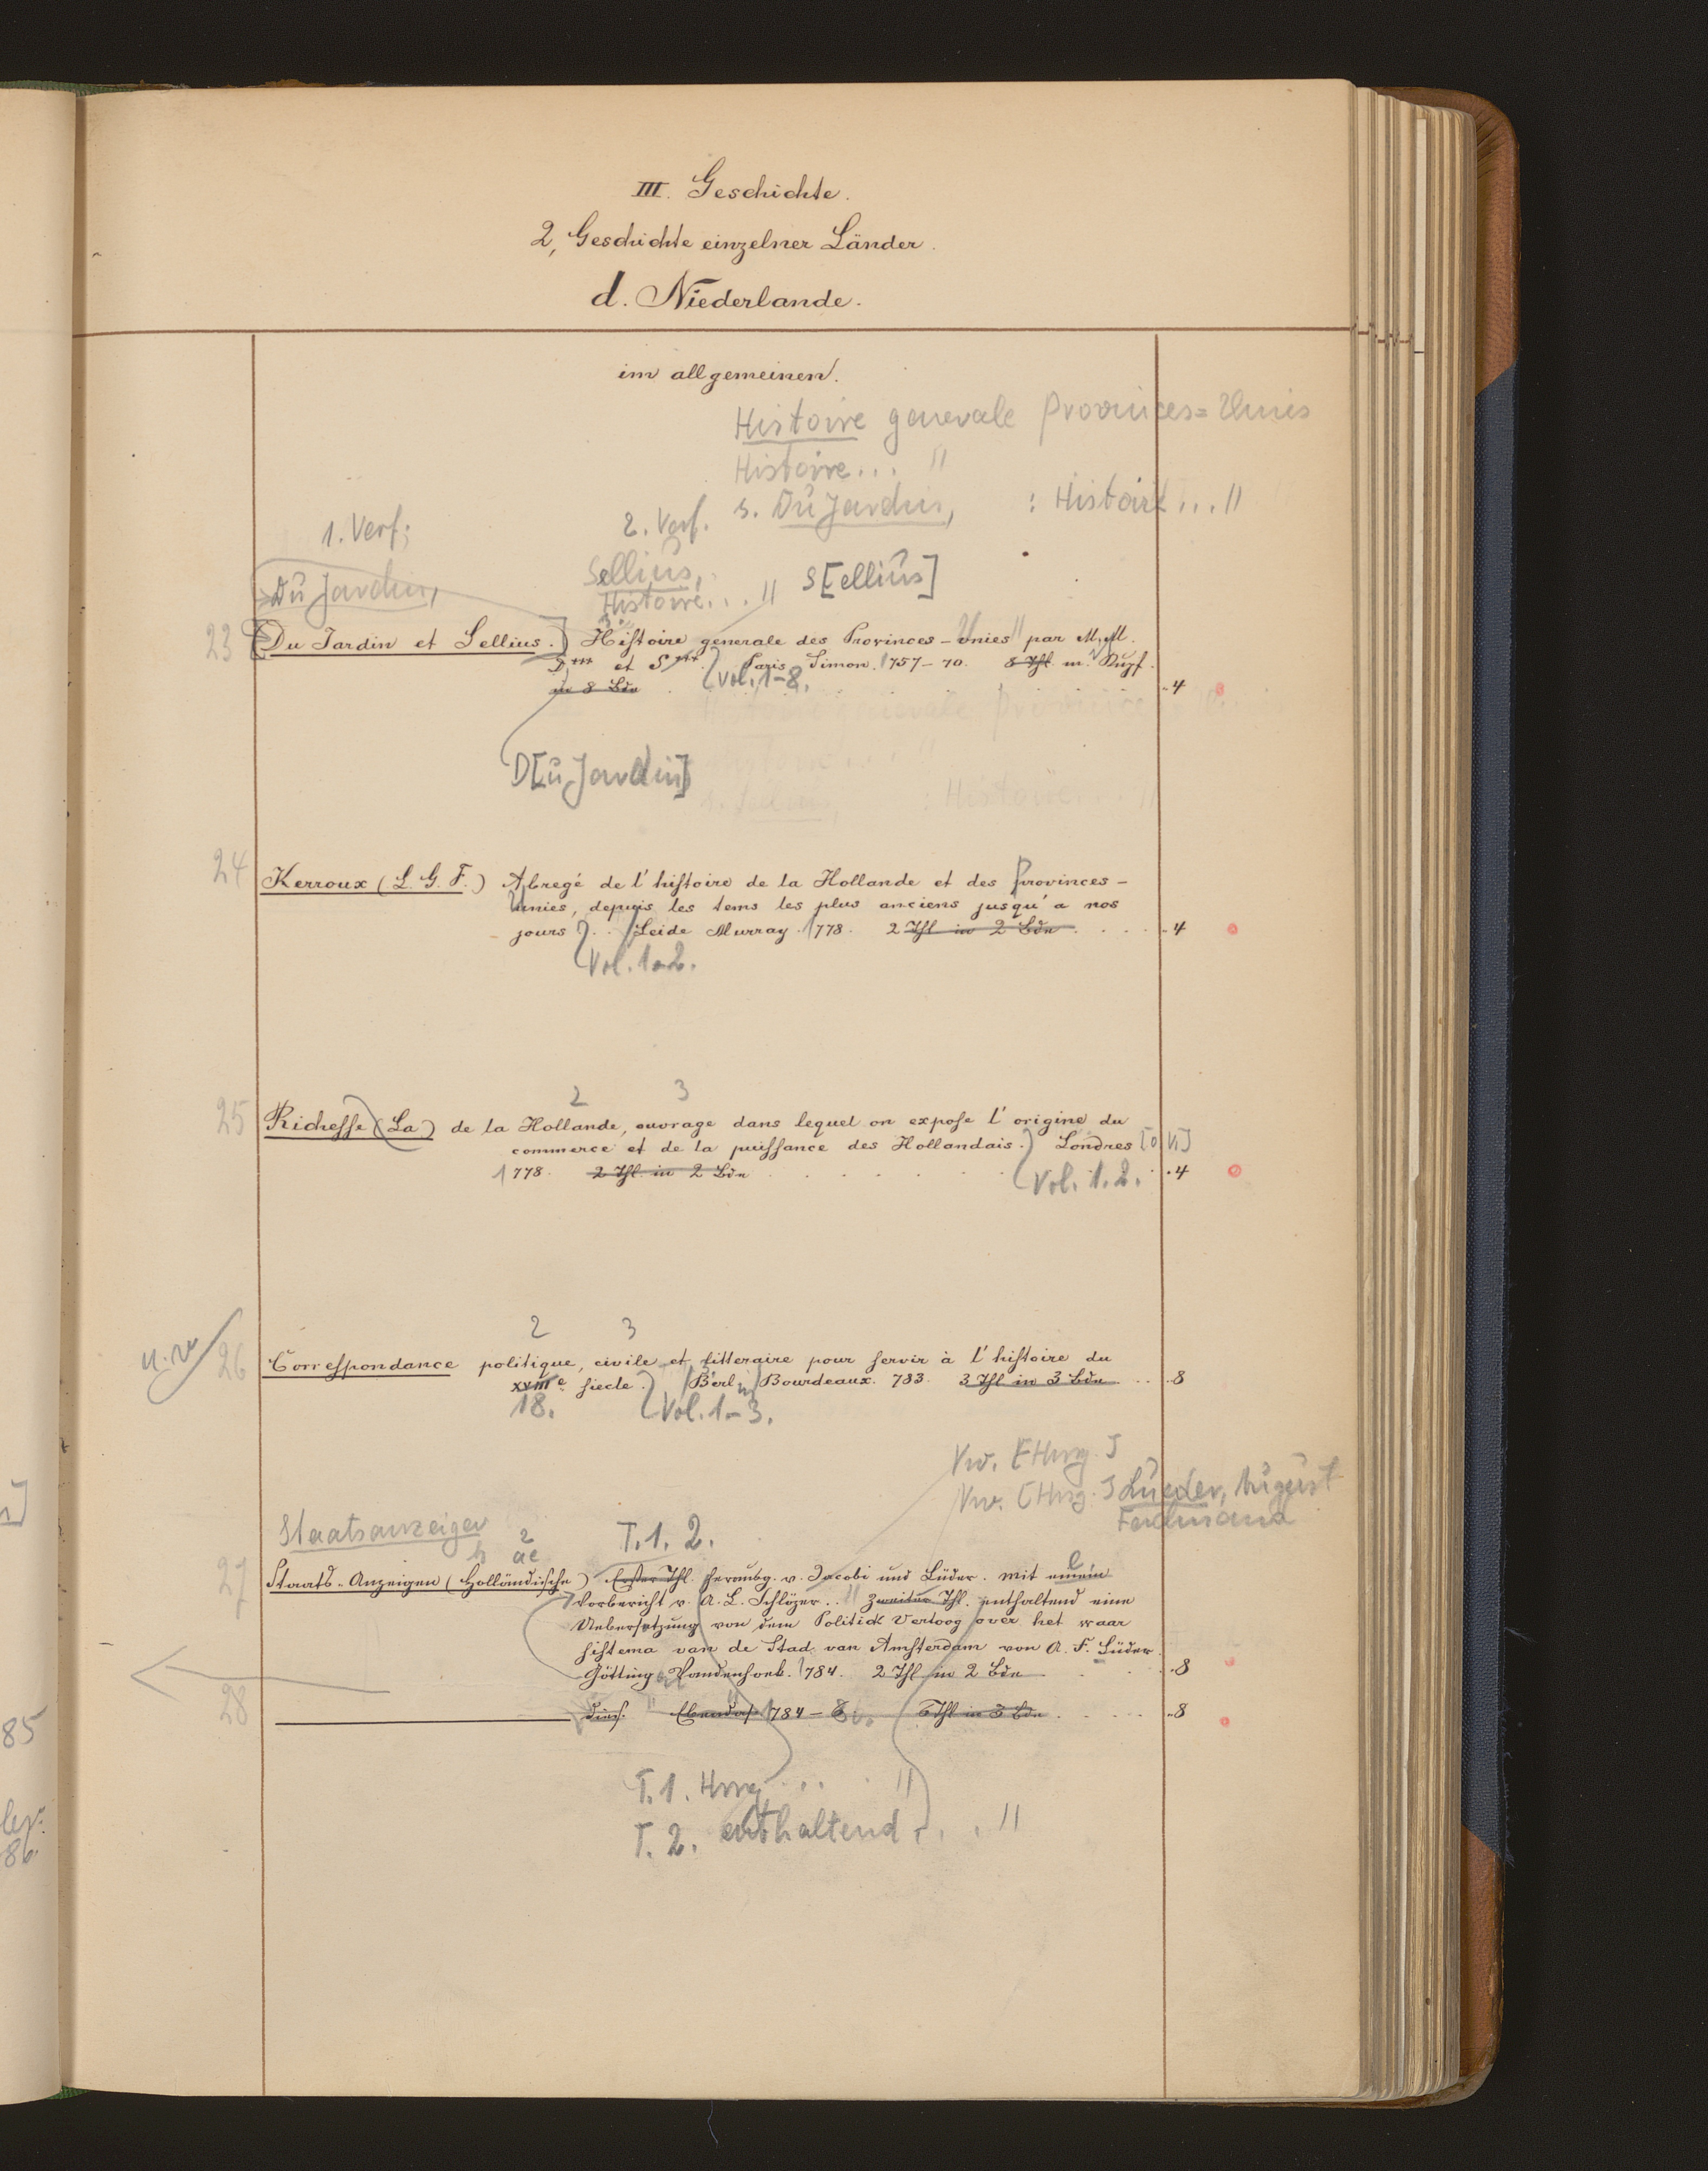 III. Geschichte.
2, Geschichte einzelner Länder.
d. Niederlande.
im allgemeinen.
Histoire generale Provinces=Unies
Histoire... "
s. Du Jardin, : Histoire... "
1. Verf: 2. Verf.
Du Jardin, Sellius, S[ellius]
Histoire... "
23 Du Jardin et Sellius.) Histoire generale des Provinces-Unies" par M.M.
D*** et S***. Paris Simon. 1757-70. 8 Thl m. Kupf.
in 8 Bdn (Vol. 1-8. .4
D[u Jardin]
24 Kerroux (L. G. F.) Abregé de l'histoire de la Hollande et des Provinces-
Unies, depuis les tems les plus anciens jusqu'a nos
jours). Leide Murray. 1778. 2 Thl in 2 Bdn .4
Vol. 1-2.
2 3
25 Richesse (La) de la Hollande, ouvrage dans lequel on expose l'origine du
commerce et de la puissance des Hollandais.) Londres [o V]
1778. 2 Thl in 2 Bdn Vol. 1.2. .4
2 3
26 Correspondance politique, civile et litteraire pour servir à l'histoire du
XVIIIe siecle.) Berl. Bourdeaux. 783. 3 Thl in 3 Bdn .8
18. (Vol. 1-3.
Vw. [Hrsg.]
Vw. [Hrsg.] Lueder, August
Ferdinand
Staatsanzeigen
h 2 ae T. 1. 2.
27 Staats-Anzeigen (Holländische) Erster Thl. herausg. v. Jacobi und Lüder. mit einem
Vorbericht v. A. L. Schlözer.. " Zweiter Thl. enthaltend eine
Uebersetzung von dem Politick Vertoog over het waar
sistema van de Stad van Amsterdam von A. F. Lüder.
Götting Vandenhoek. 1784. 2 Thl in 2 Bdn .8
28 dies. " Ebendas 1784-8 6 Thl in 3 Bdn .8
T. 1. Hrsg... "
T. 2. enthaltend... "
85
86.